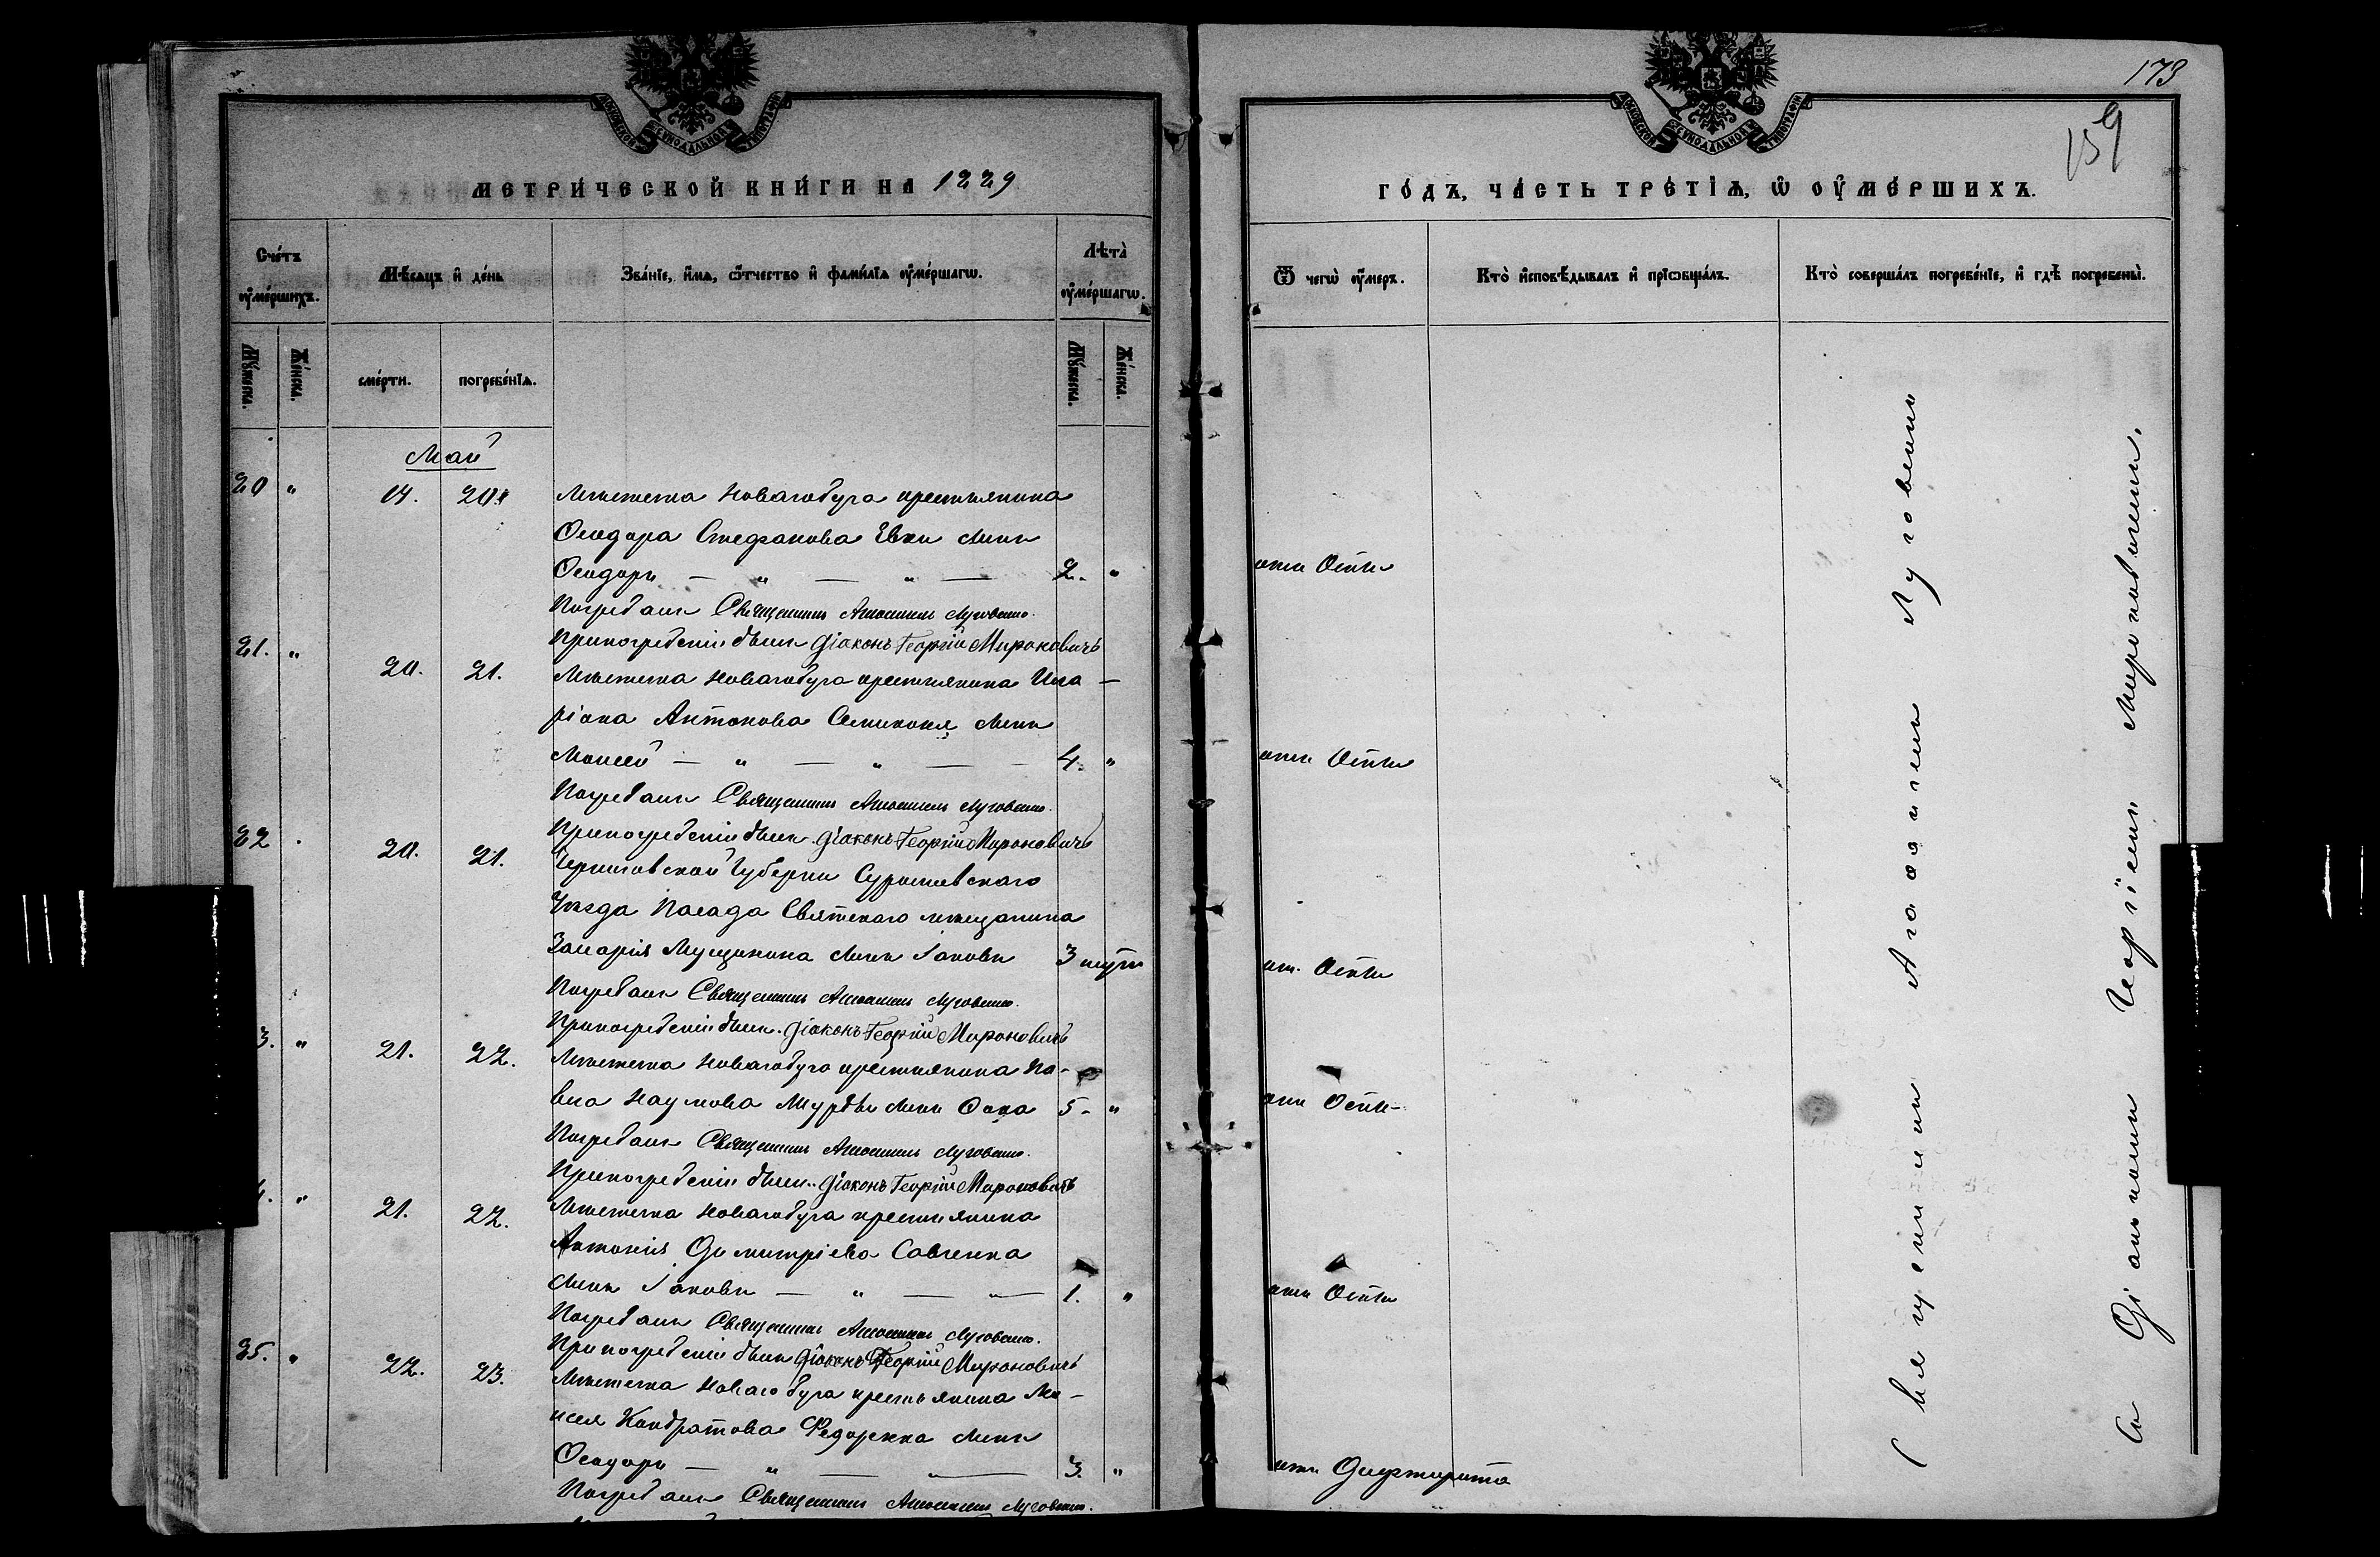 МОСКОВСКОЙ СѴНОДАЛЬНОЙ ТИПОГРАФІИ
МЕТРИ́ЧЕСКОЙ КНИ́ГИ НА 1889
Сче́тъ ᲂу҆ме́ршихъ.
Мѣ́сяцъ и҆ де́нь
Зва́нїе, и҆́мѧ, ѻ҆́тчество и҆ фами́лїѧ ᲂу҆ме́ршагѡ.
Лѣта̀ ᲂу҆ме́ршагѡ.
Мꙋ́жеска.
Же́нска.
сме́рти.
погребе́нїѧ.
Мꙋ́жеска.
Же́нска.
Май
20 " 14. 20. Мѣстечка Новагобуга крестьянина
Ѳеодора Стефанова Евки сынъ
Ѳеодоръ — " — " — 2. "
Погребалъ Священникъ Аѳанасій Луговенко.
При погребеніи былъ Діаконъ Георгій Мироновичъ
21. " 20. 21. Мѣстечка Новагобуга крестьянина Ила-
ріона Антонова сынъ
Моисей — " — " — 4. "
Погребалъ Священникъ Аѳанасій Луговенко.
При погребеніи былъ Діаконъ Георгій Мироновичъ
22 . 20. 21. Черниговской Губерніи Суражевскаго
Уѣзда Посада Святскаго мѣщанина
Захарія Мущинина сынъ Іаковъ 3
Погребалъ Священникъ Аѳанасій Луговенко.
При погребеніи былъ Діаконъ Георгій Мироновичъ
3. " 21. 22. Мѣстечка Новагобуга крестьянина Па-
вла Наумова сынъ 5. "
Погребалъ Священникъ Аѳанасій Луговенко.
При погребеніи былъ Діаконъ Георгій Мироновичъ
4. " 21. 22. Мѣстечка Новагобуга крестьянина
Антонія Димитріева Савченка
сынъ Іаковъ — " — " — 1. "
Погребалъ Священникъ Аѳанасій Луговенко.
При погребеніи былъ Діаконъ Георгій Мироновичъ
25. " 22. 23. Мѣстечка Новаго буга крестьянина Мо-
исея Кондратова Федоренка сынъ
Ѳеодоръ — " — " — 3. "
Погребалъ Священникъ Аѳанасій Луговенко.
МОСКОВСКОЙ СѴНОДАЛЬНОЙ ТИПОГРАФІИ
173
159
ГО́ДЪ, ЧА́СТЬ ТРЕ́ТЇѦ, Ѡ҆ ОУ҆МЕ́РШИХЪ.
Ѿ чегѡ̀ ᲂу҆́меръ.
Кто̀ и҆сповѣ́дывалъ и҆ прїѡбща́лъ.
Кто̀ соверша́лъ погребе́нїе, и҆ гдѣ̀ погребены̀.
отъ Оспы
отъ Оспы
отъ Оспы
отъ Оспы
отъ Оспы
отъ Дифтерита
Священникъ Аѳанасій Луговенко
съ Діакономъ Георгіемъ Мироновичемъ.